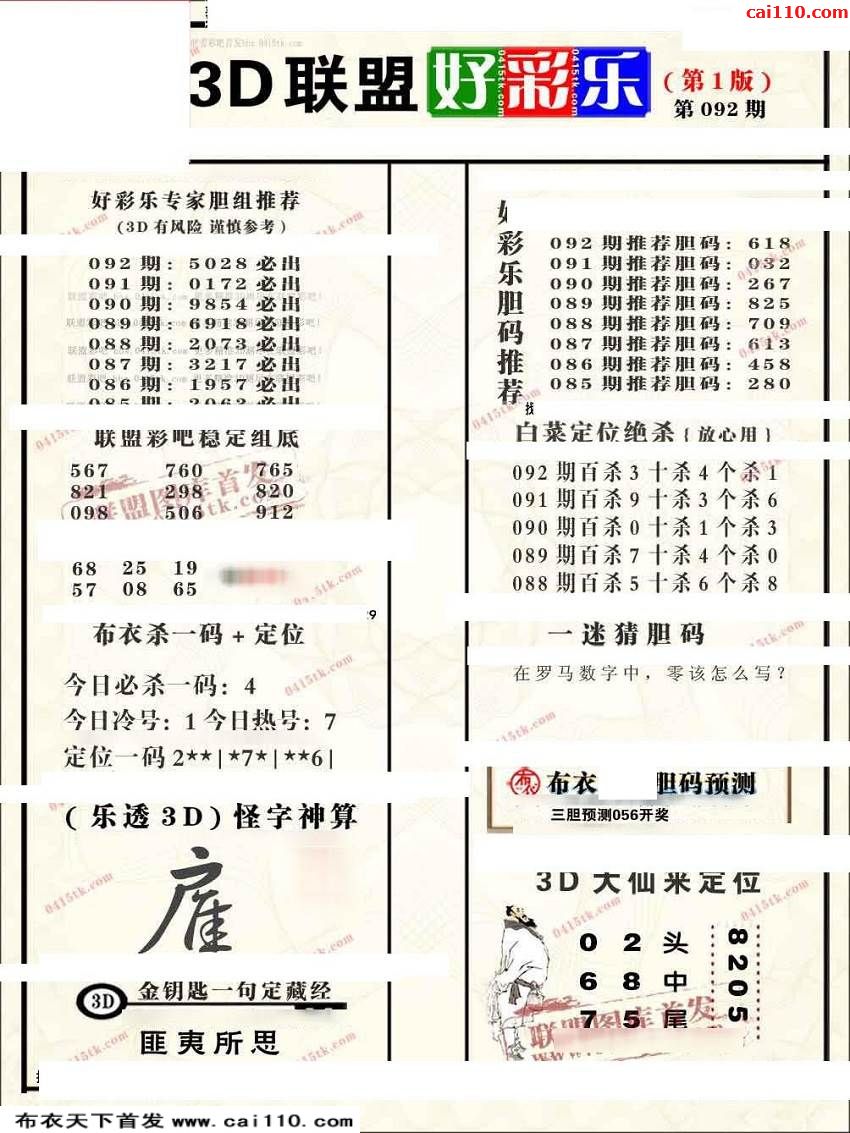 cai110.com
3D 联盟 好彩乐 (第1版)
第 092 期
好彩乐专家胆组推荐
(3D 有风险 谨慎参考)
092 期: 5028 必出
091 期: 0172 必出
090 期: 9854 必出
089 期: 6918 必出
088 期: 2073 必出
087 期: 3217 必出
086 期: 1957 必出
085 期: 2063 必出
联盟彩吧稳定组底
567 760 765
821 298 820
098 506 912
68 25 19
57 08 65
布衣杀一码 + 定位
今日必杀一码: 4
今日冷号: 1 今日热号: 7
定位一码 2**|*7*|**6|
(乐透 3D) 怪字神算
雇
3D 金钥匙一句定藏经
匪夷所思
好彩乐胆码推荐
092 期推荐胆码: 618
091 期推荐胆码: 032
090 期推荐胆码: 267
089 期推荐胆码: 825
088 期推荐胆码: 709
087 期推荐胆码: 613
086 期推荐胆码: 458
085 期推荐胆码: 280
白菜定位绝杀 { 放心用 }
092 期百杀 3 十杀 4 个杀 1
091 期百杀 9 十杀 3 个杀 6
090 期百杀 0 十杀 1 个杀 3
089 期百杀 7 十杀 4 个杀 0
088 期百杀 5 十杀 6 个杀 8
一迷猜胆码
在罗马数字中, 零该怎么写?
布衣 胆码预测
三胆预测056开奖
3D 大仙来定位
0 2 头
6 8 中
7 5 尾
8205
联盟图库首发
0415tk.com
布衣天下首发 www.cai110.com